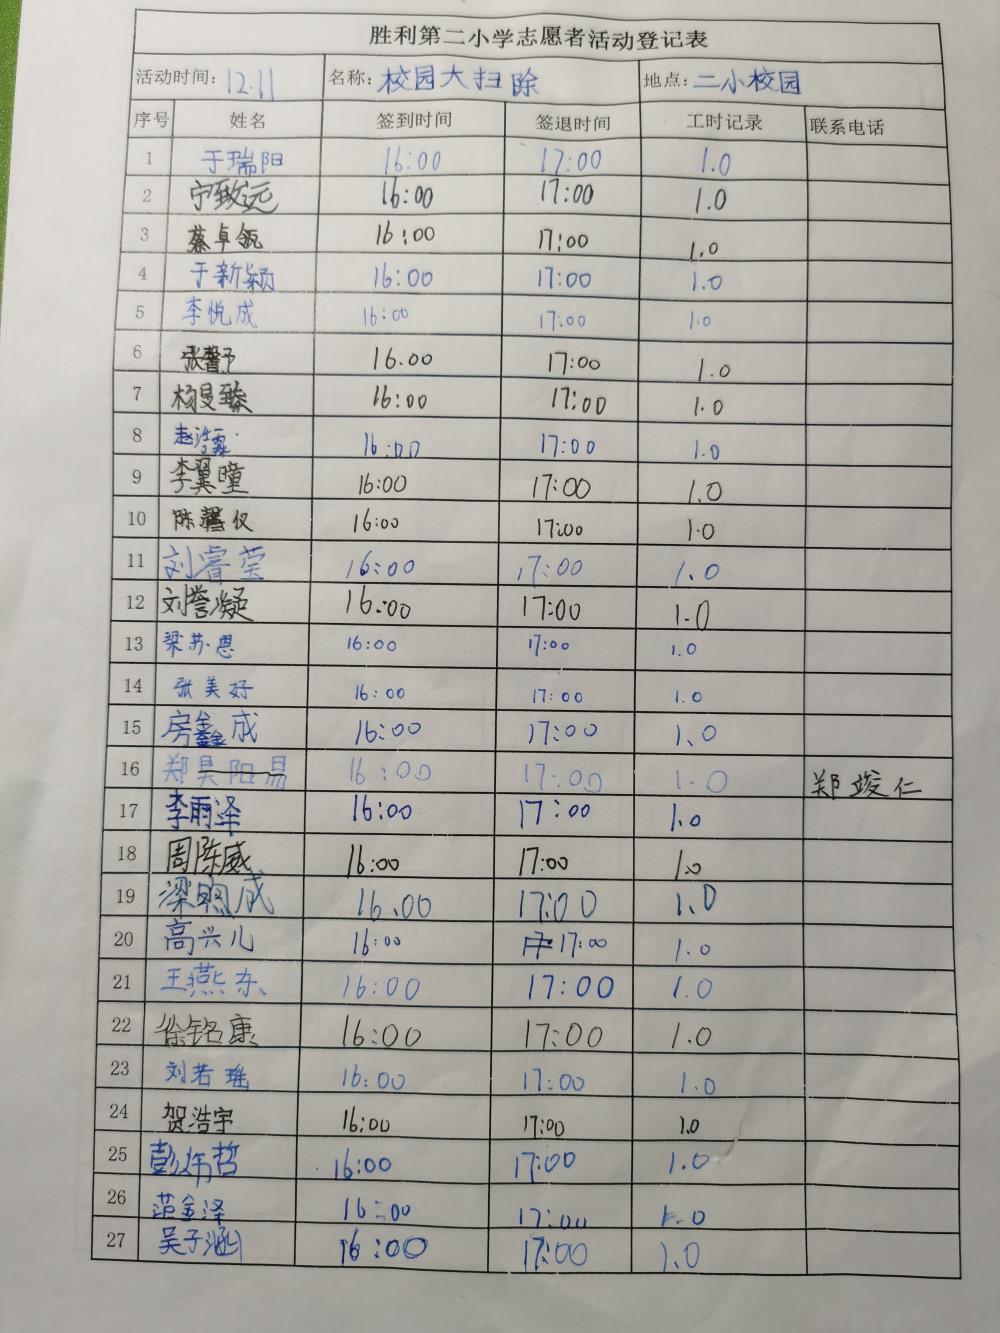 胜利第二小学志愿者活动登记表
活动时间: 12.11 名称: 校园大扫除 地点: 二小校园
序号 姓名 签到时间 签退时间 工时记录 联系电话
1 于瑞阳 16:00 17:00 1.0
2 宁致远 16:00 17:00 1.0
3 蔡卓瓴 16:00 17:00 1.0
4 于新颖 16:00 17:00 1.0
5 李悦成 16:00 17:00 1.0
6 张馨予 16.00 17:00 1.0
7 杨曼臻 16:00 17:00 1.0
8 赵浩霖 16:00 17:00 1.0
9 李翼曈 16:00 17:00 1.0
10 陈馨仪 16:00 17:00 1.0
11 刘睿莹 16:00 17:00 1.0
12 刘誉凝 16:00 17:00 1.0
13 梁苏恩 16:00 17:00 1.0
14 张美好 16:00 17:00 1.0
15 房鑫成 16:00 17:00 1.0
16 郑昊阳易 16:00 17:00 1.0 郑竣仁
17 李雨泽 16:00 17:00 1.0
18 周陈威 16:00 17:00 1.0
19 梁 成 16.00 17:00 1.0
20 高兴儿 16:00 17:00 1.0
21 王燕东 16:00 17:00 1.0
22 徐铭康 16:00 17:00 1.0
23 刘若瑶 16:00 17:00 1.0
24 贺浩宇 16:00 17:00 1.0
25 彭炜哲 16:00 17:00 1.0
26 范金泽 16:00 17:00 1.0
27 吴子涵 16:00 17:00 1.0